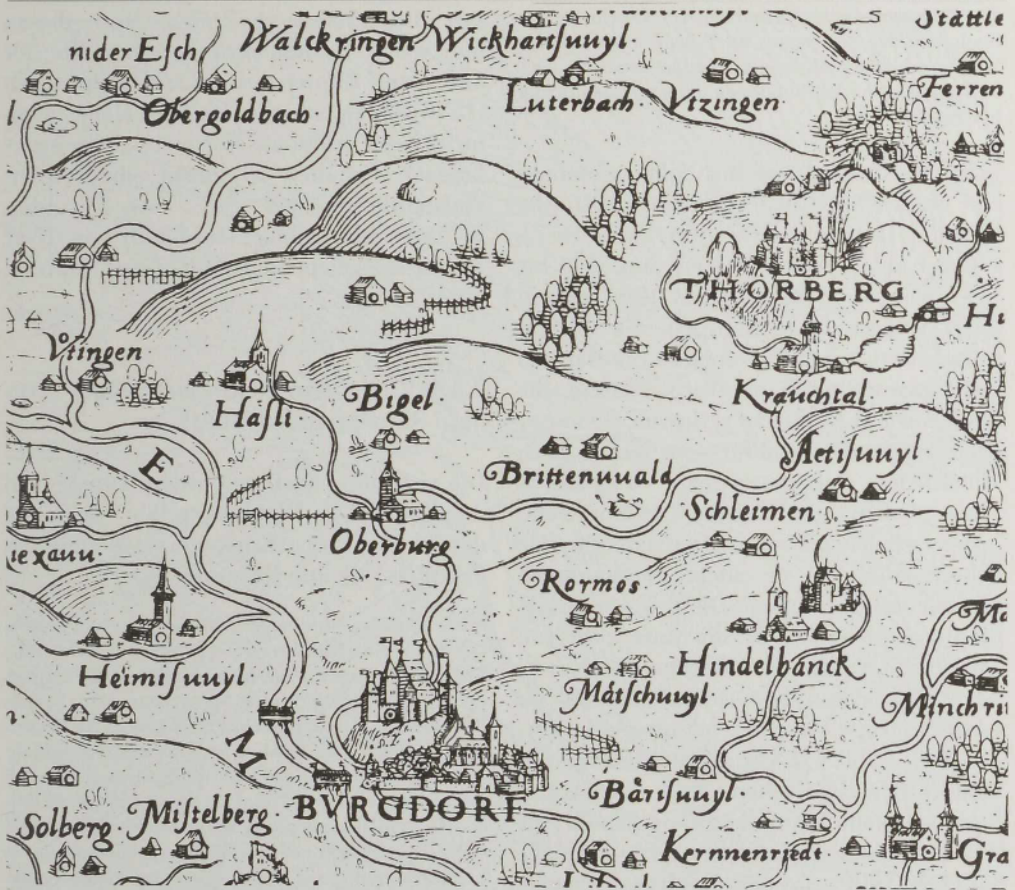 Stättle
nider Eſch
Walckringen
Wickhartſuuyl·
Luterbach·
Vtzingen·
Ferren
Obergoldbach·
THORBERG
Vtingen
Haſli·
Bigel·
Krauchtal·
E
Brittenuuald
Aetiſuuyl·
Schleimen
iexauu·
Oberburg
Rormos
Heimiſuuyl
Hindelbanck
Mátſchuuyl·
Minchri
M
BVRGDORF
Báriſuuyl·
Solberg·
Miſtelberg·
Kernnenriedt·
Gra